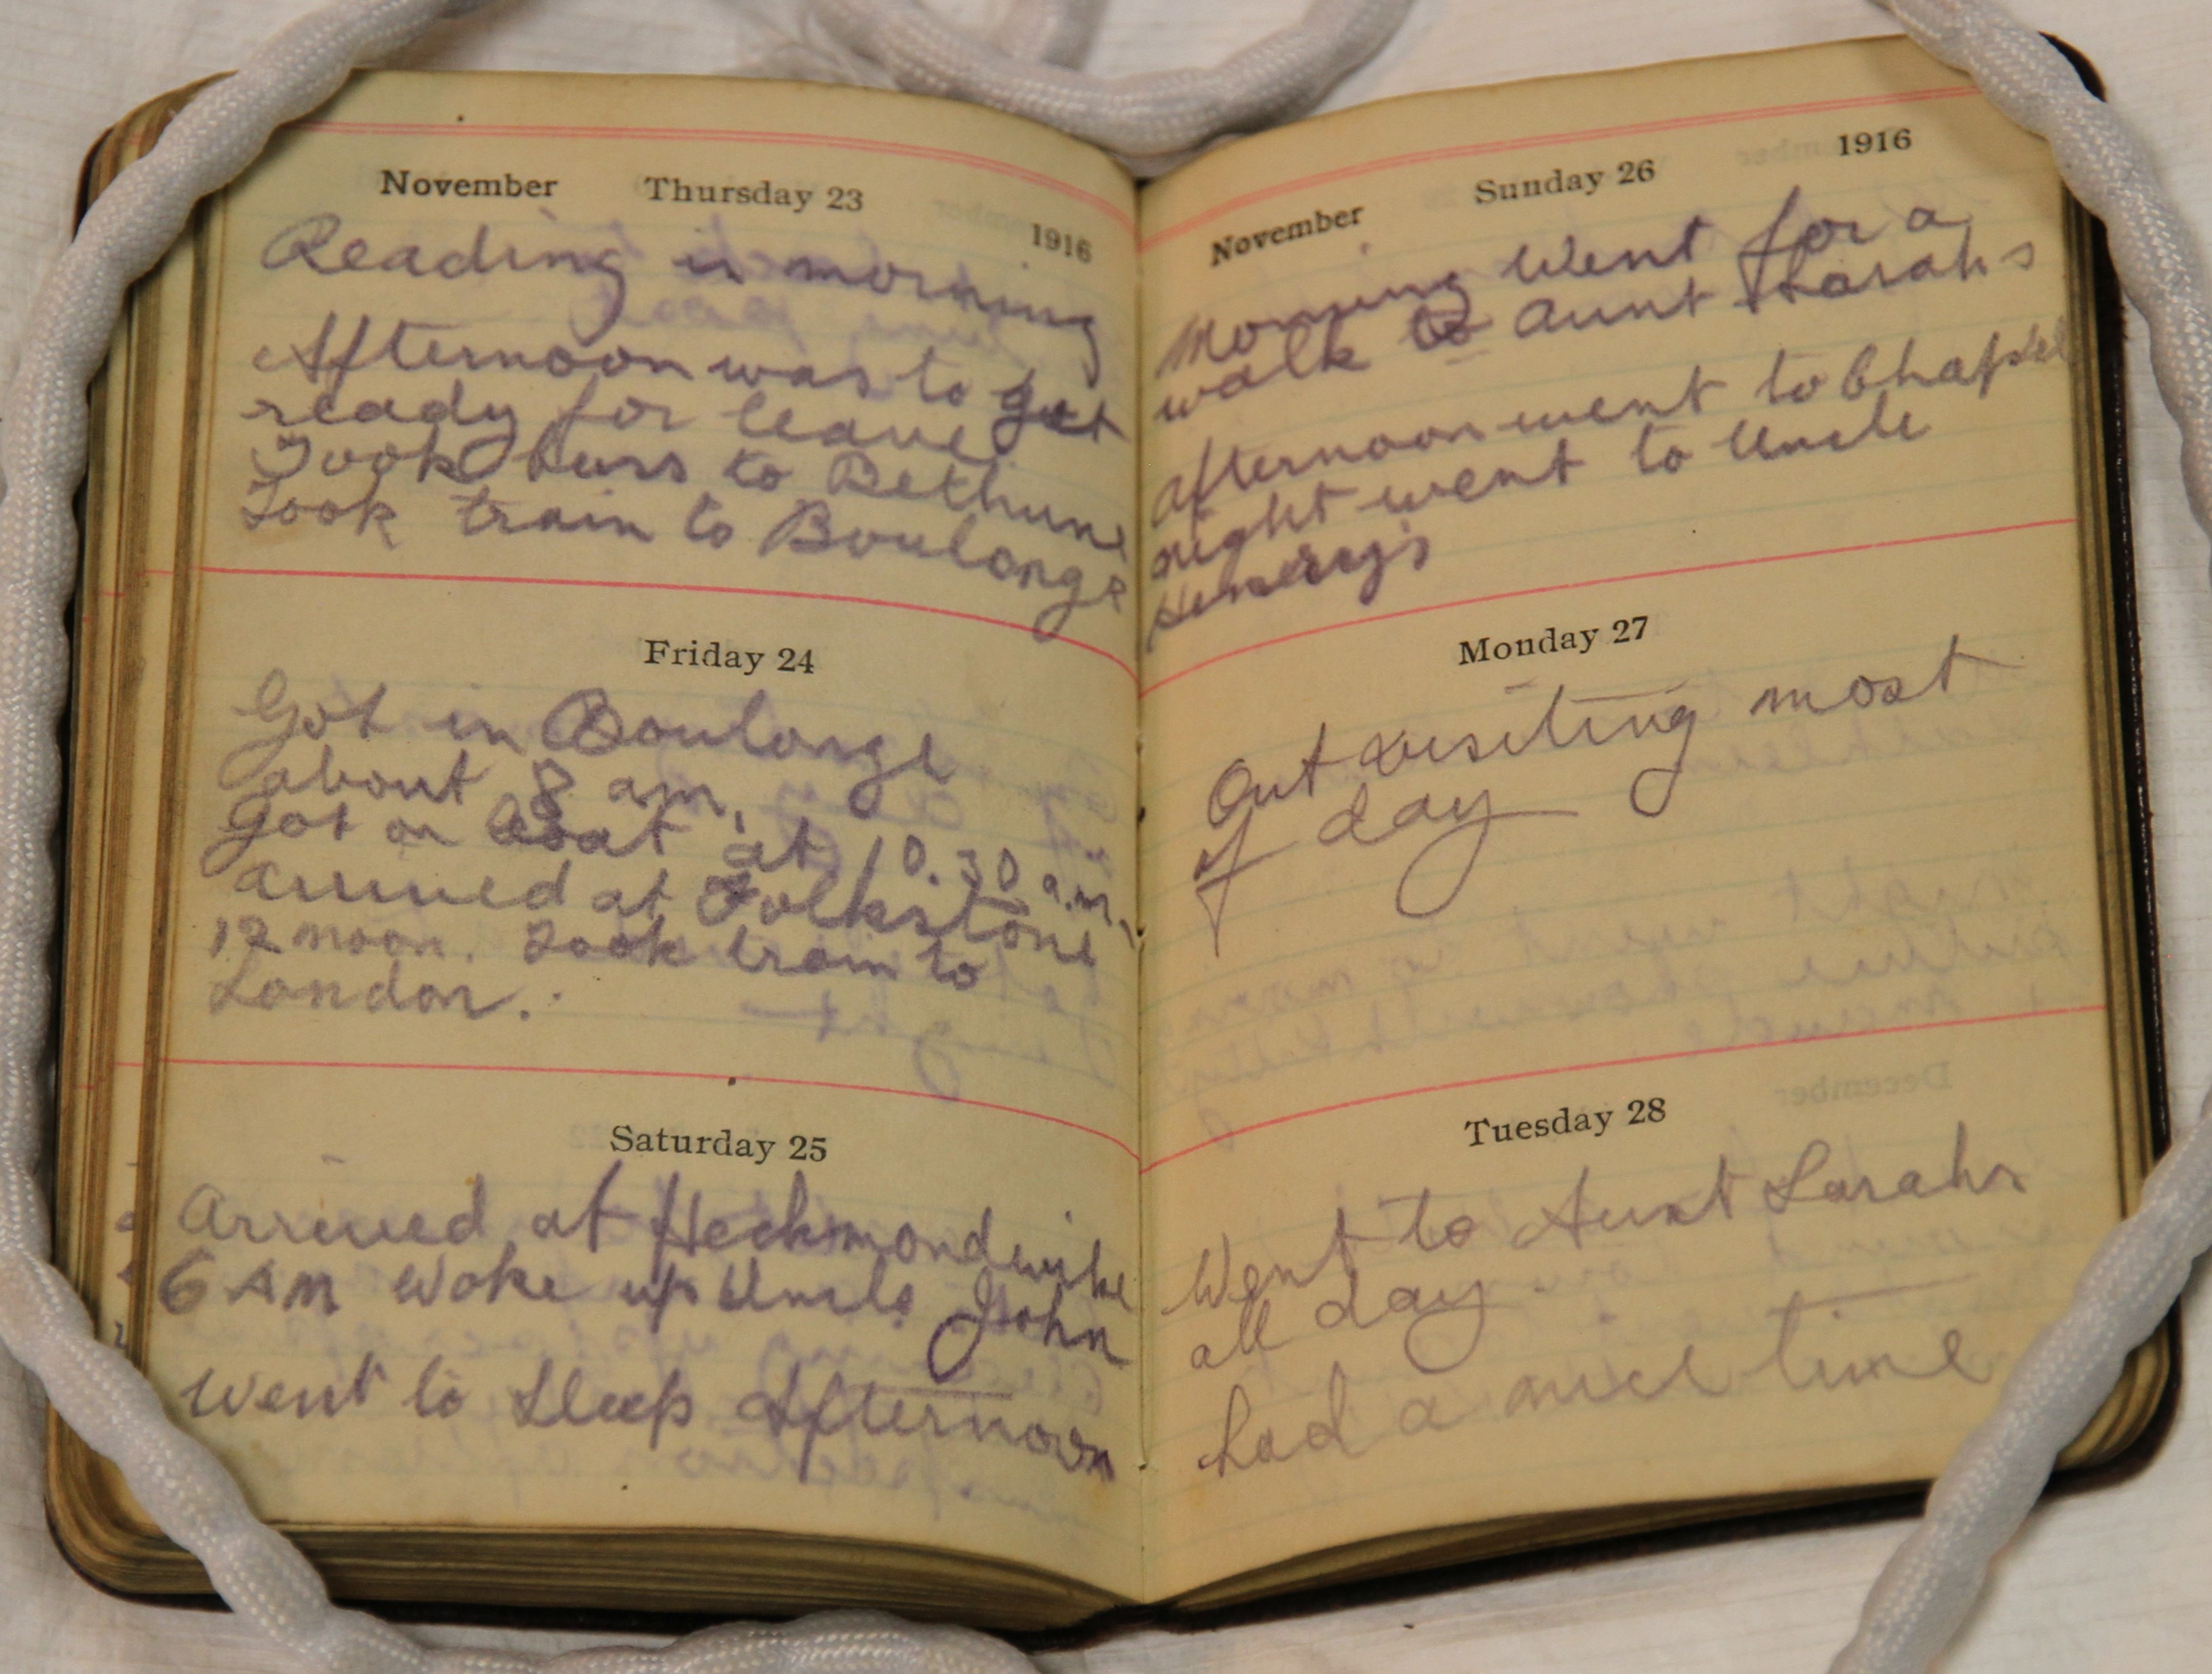 November Thursday 23 1916
Reading in morning
Afternoon was to get
ready for leave
Took buss to Bethune
Took train to Boulonge
Friday 24
Got in Boulonge
about 8 am.
Got on Boat at 10.30 a.m.
arrived at Folkstone
12 noon. Took train to
London.
Saturday 25
Arrived at Heckmondwike
6 AM Woke up Uncle John
Went to Sleep Afternoon
November Sunday 26 1916
Morning Went for a
walk to Aunt Sarahs
afternoon went to Chapel
night went to Uncle
Henerys
Monday 27
Out visiting most
of day
Tuesday 28
Went to Aunt Sarahs
all day
had a nice time